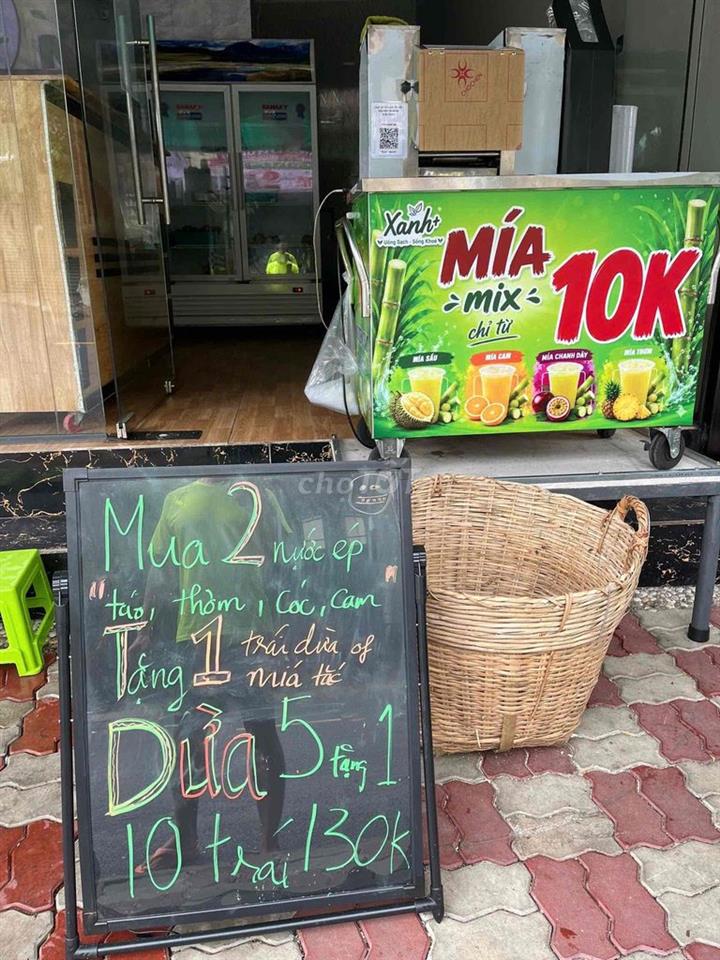 Xanh+
Uống Sạch - Sống Khoẻ
MÍA
mix
chỉ từ
10K
MÍA SẦU
MÍA CAM
MÍA CHANH DÂY
MÍA THƠM
Mua 2 nước ép
"táo, thơm, cóc, cam"
Tặng 1 trái dừa of
miá tắc
DỪA 5 tặng 1
10 trái 130k